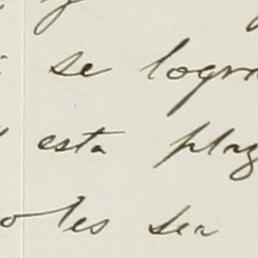 se logra
esta plaz
les sea